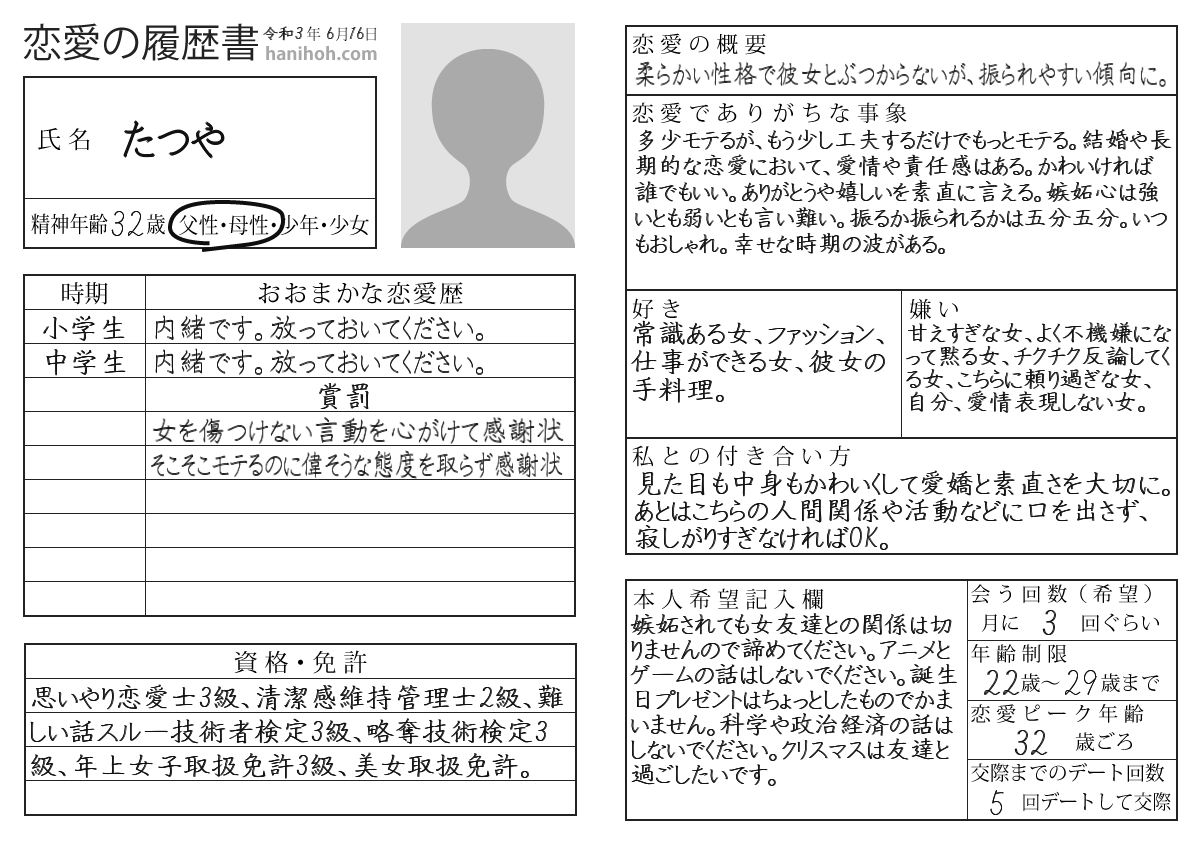 恋愛の履歴書
令和3年 6月16日
hanihoh.com
氏名 たつや
精神年齢32歳 父性・母性・少年・少女
時期 おおまかな恋愛歴
小学生 内緒です。放っておいてください。
中学生 内緒です。放っておいてください。
賞罰
女を傷つけない言動を心がけて感謝状
そこそこモテるのに偉そうな態度を取らず感謝状
資格・免許
思いやり恋愛士3級、清潔感維持管理士2級、難
しい話スルー技術者検定3級、略奪技術検定3
級、年上女子取扱免許3級、美女取扱免許。
恋愛の概要
柔らかい性格で彼女とぶつからないが、振られやすい傾向に。
恋愛でありがちな事象
多少モテるが、もう少し工夫するだけでもっとモテる。結婚や長
期的な恋愛において、愛情や責任感はある。かわいければ
誰でもいい。ありがとうや嬉しいを素直に言える。嫉妬心は強
いとも弱いとも言い難い。振るか振られるかは五分五分。いつ
もおしゃれ。幸せな時期の波がある。
好き
常識ある女、ファッション、
仕事ができる女、彼女の
手料理。
嫌い
甘えすぎな女、よく不機嫌にな
って黙る女、チクチク反論してく
る女、こちらに頼り過ぎな女、
自分、愛情表現しない女。
私との付き合い方
見た目も中身もかわいくして愛嬌と素直さを大切に。
あとはこちらの人間関係や活動などに口を出さず、
寂しがりすぎなければOK。
本人希望記入欄
嫉妬されても女友達との関係は切
りませんので諦めてください。アニメと
ゲームの話はしないでください。誕生
日プレゼントはちょっとしたものでかま
いません。科学や政治経済の話は
しないでください。クリスマスは友達と
過ごしたいです。
会う回数(希望)
月に 3 回ぐらい
年齢制限
22歳〜29歳まで
恋愛ピーク年齢
32 歳ごろ
交際までのデート回数
5 回デートして交際